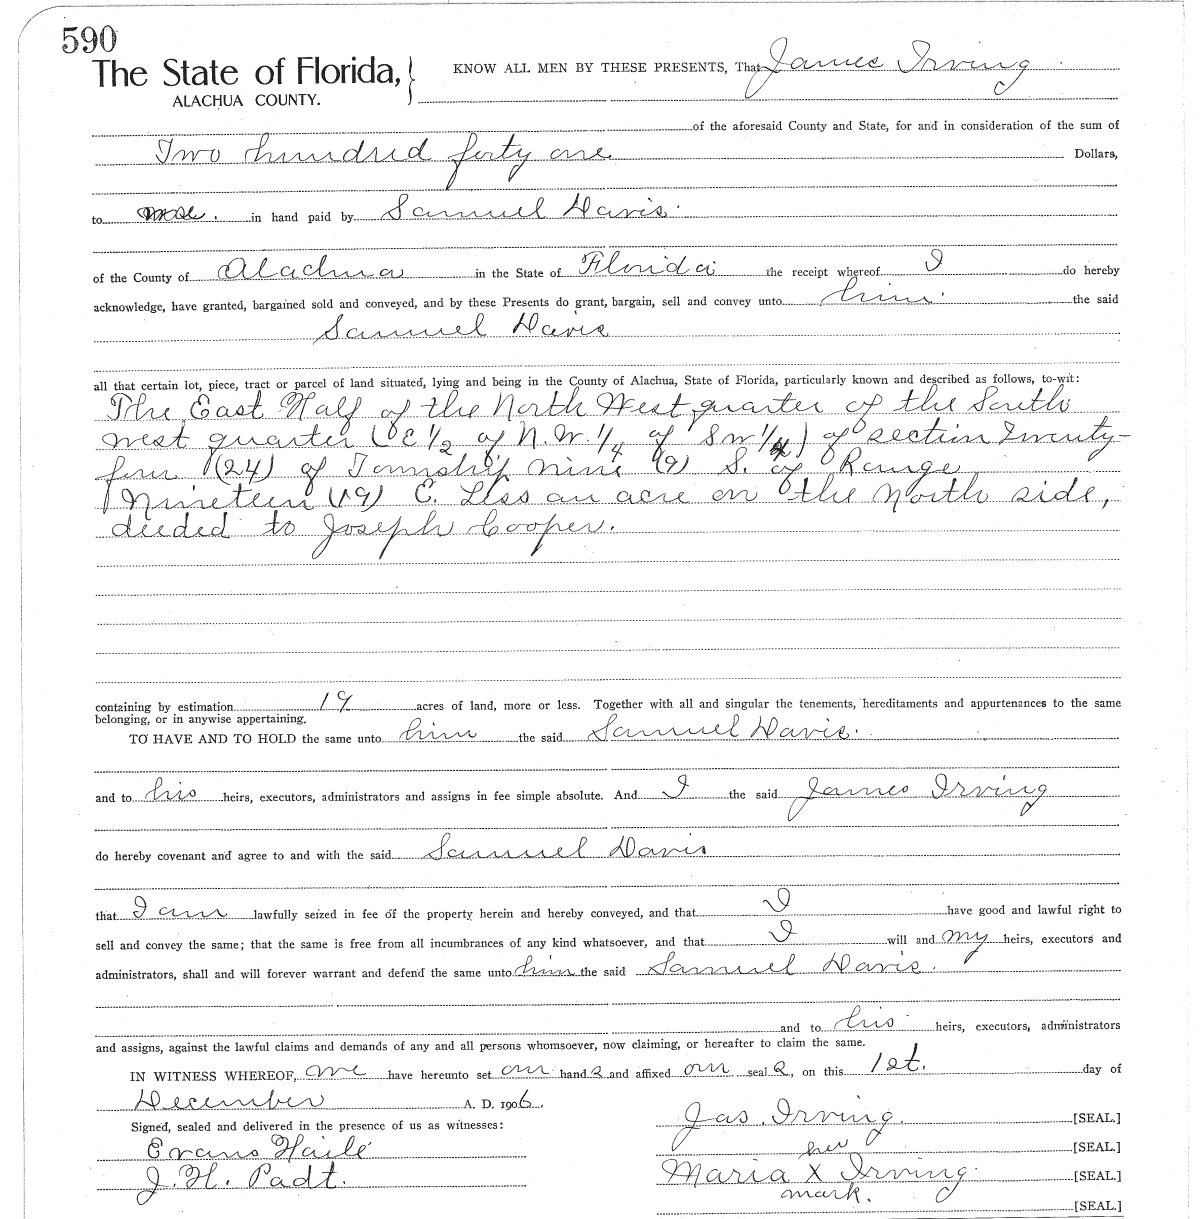 590
The State of Florida, KNOW ALL MEN BY THESE PRESENTS, That James Irving
ALACHUA COUNTY.
of the aforesaid County and State, for and in consideration of the sum of
Two hundred forty one Dollars,
to in hand paid by Samuel Davis.
of the County of Alachua in the State of Florida the receipt whereof I do hereby
acknowledge, have granted, bargained sold and conveyed, and by these Presents do grant, bargain, sell and convey unto him. the said
Samuel Davis
all that certain lot, piece, tract or parcel of land situated, lying and being in the County of Alachua, State of Florida, particularly known and described as follows, to-wit:
The East Half of the North West quarter of the South
West quarter (E 1/2 of N.W. 1/4 of SW 1/4) of section Twenty-
four (24) of Township nine (9) S. of Range
Nineteen (19) E. Less an acre on the North side,
deeded to Joseph Cooper.
containing by estimation 19 acres of land, more or less. Together with all and singular the tenements, hereditaments and appurtenances to the same
belonging, or in anywise appertaining.
TO HAVE AND TO HOLD the same unto him the said Samuel Davis.
and to his heirs, executors, administrators and assigns in fee simple absolute. And I the said James Irving
do hereby covenant and agree to and with the said Samuel Davis
that I am lawfully seized in fee of the property herein and hereby conveyed, and that I have good and lawful right to
sell and convey the same; that the same is free from all incumbrances of any kind whatsoever, and that I will and my heirs, executors and
administrators, shall and will forever warrant and defend the same unto him the said Samuel Davis.
and to his heirs, executors, administrators
and assigns, against the lawful claims and demands of any and all persons whomsoever, now claiming, or hereafter to claim the same.
IN WITNESS WHEREOF, we have hereunto set our hands and affixed our seals, on this 1st. day of
December A. D. 1906.
Signed, sealed and delivered in the presence of us as witnesses:
Jas. Irving. [SEAL.]
Evans Haile her [SEAL.]
J. H. Padt. Maria X Irving. [SEAL.]
mark. [SEAL.]